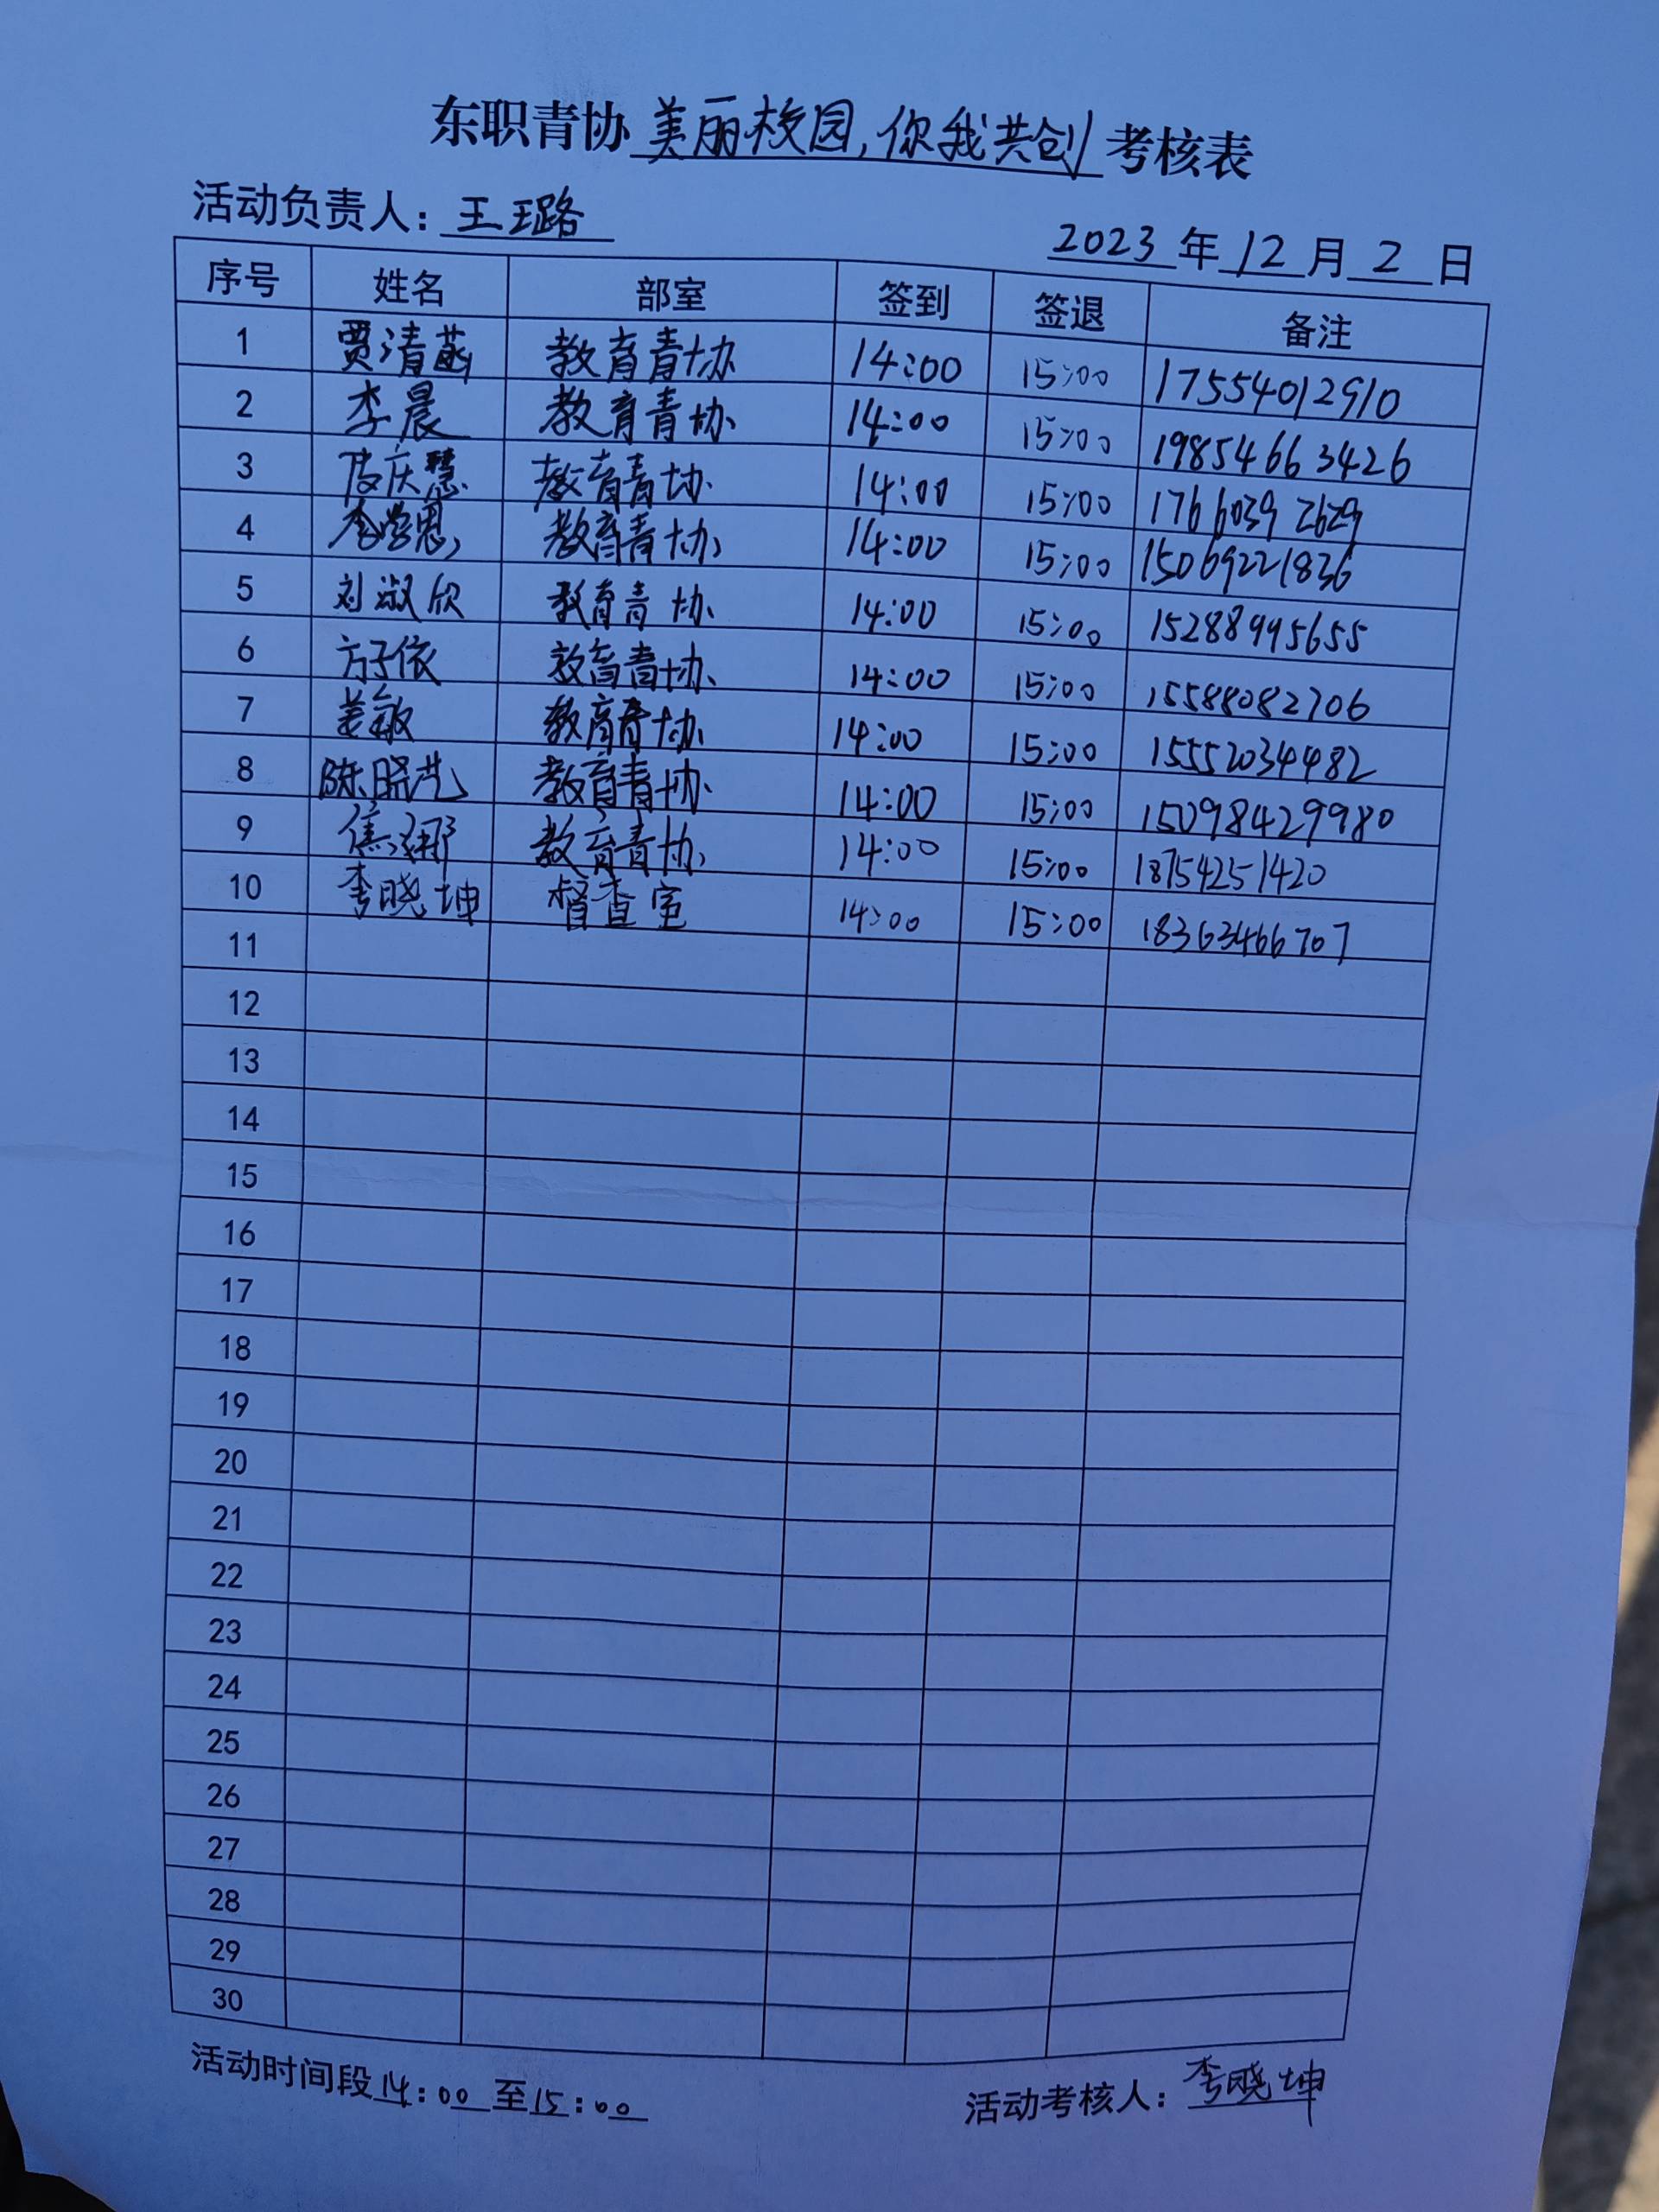 东职青协美丽校园,你我共创考核表
活动负责人:王璐
2023年12月2日
序号 姓名 部室 签到 签退 备注
1 贾清菡 教育青协 14:00 15:00 17554012910
2 李晨 教育青协 14:00 15:00 19854663426
3 庆慧 教育青协 14:00 15:00 17660392629
4 教育青协 14:00 15:00 15069221836
5 刘淑欣 教育青协 14:00 15:00 15288995655
6 方子依 教育青协 14:00 15:00 15588082706
7 姜敏 教育青协 14:00 15:00 15552034482
8 陈晓艺 教育青协 14:00 15:00 15098429980
9 焦娜 教育青协 14:00 15:00 18754251420
10 李晓坤 督查室 14:00 15:00 18363466707
11
12
13
14
15
16
17
18
19
20
21
22
23
24
25
26
27
28
29
30
活动时间段14:00至15:00
活动考核人:李晓坤